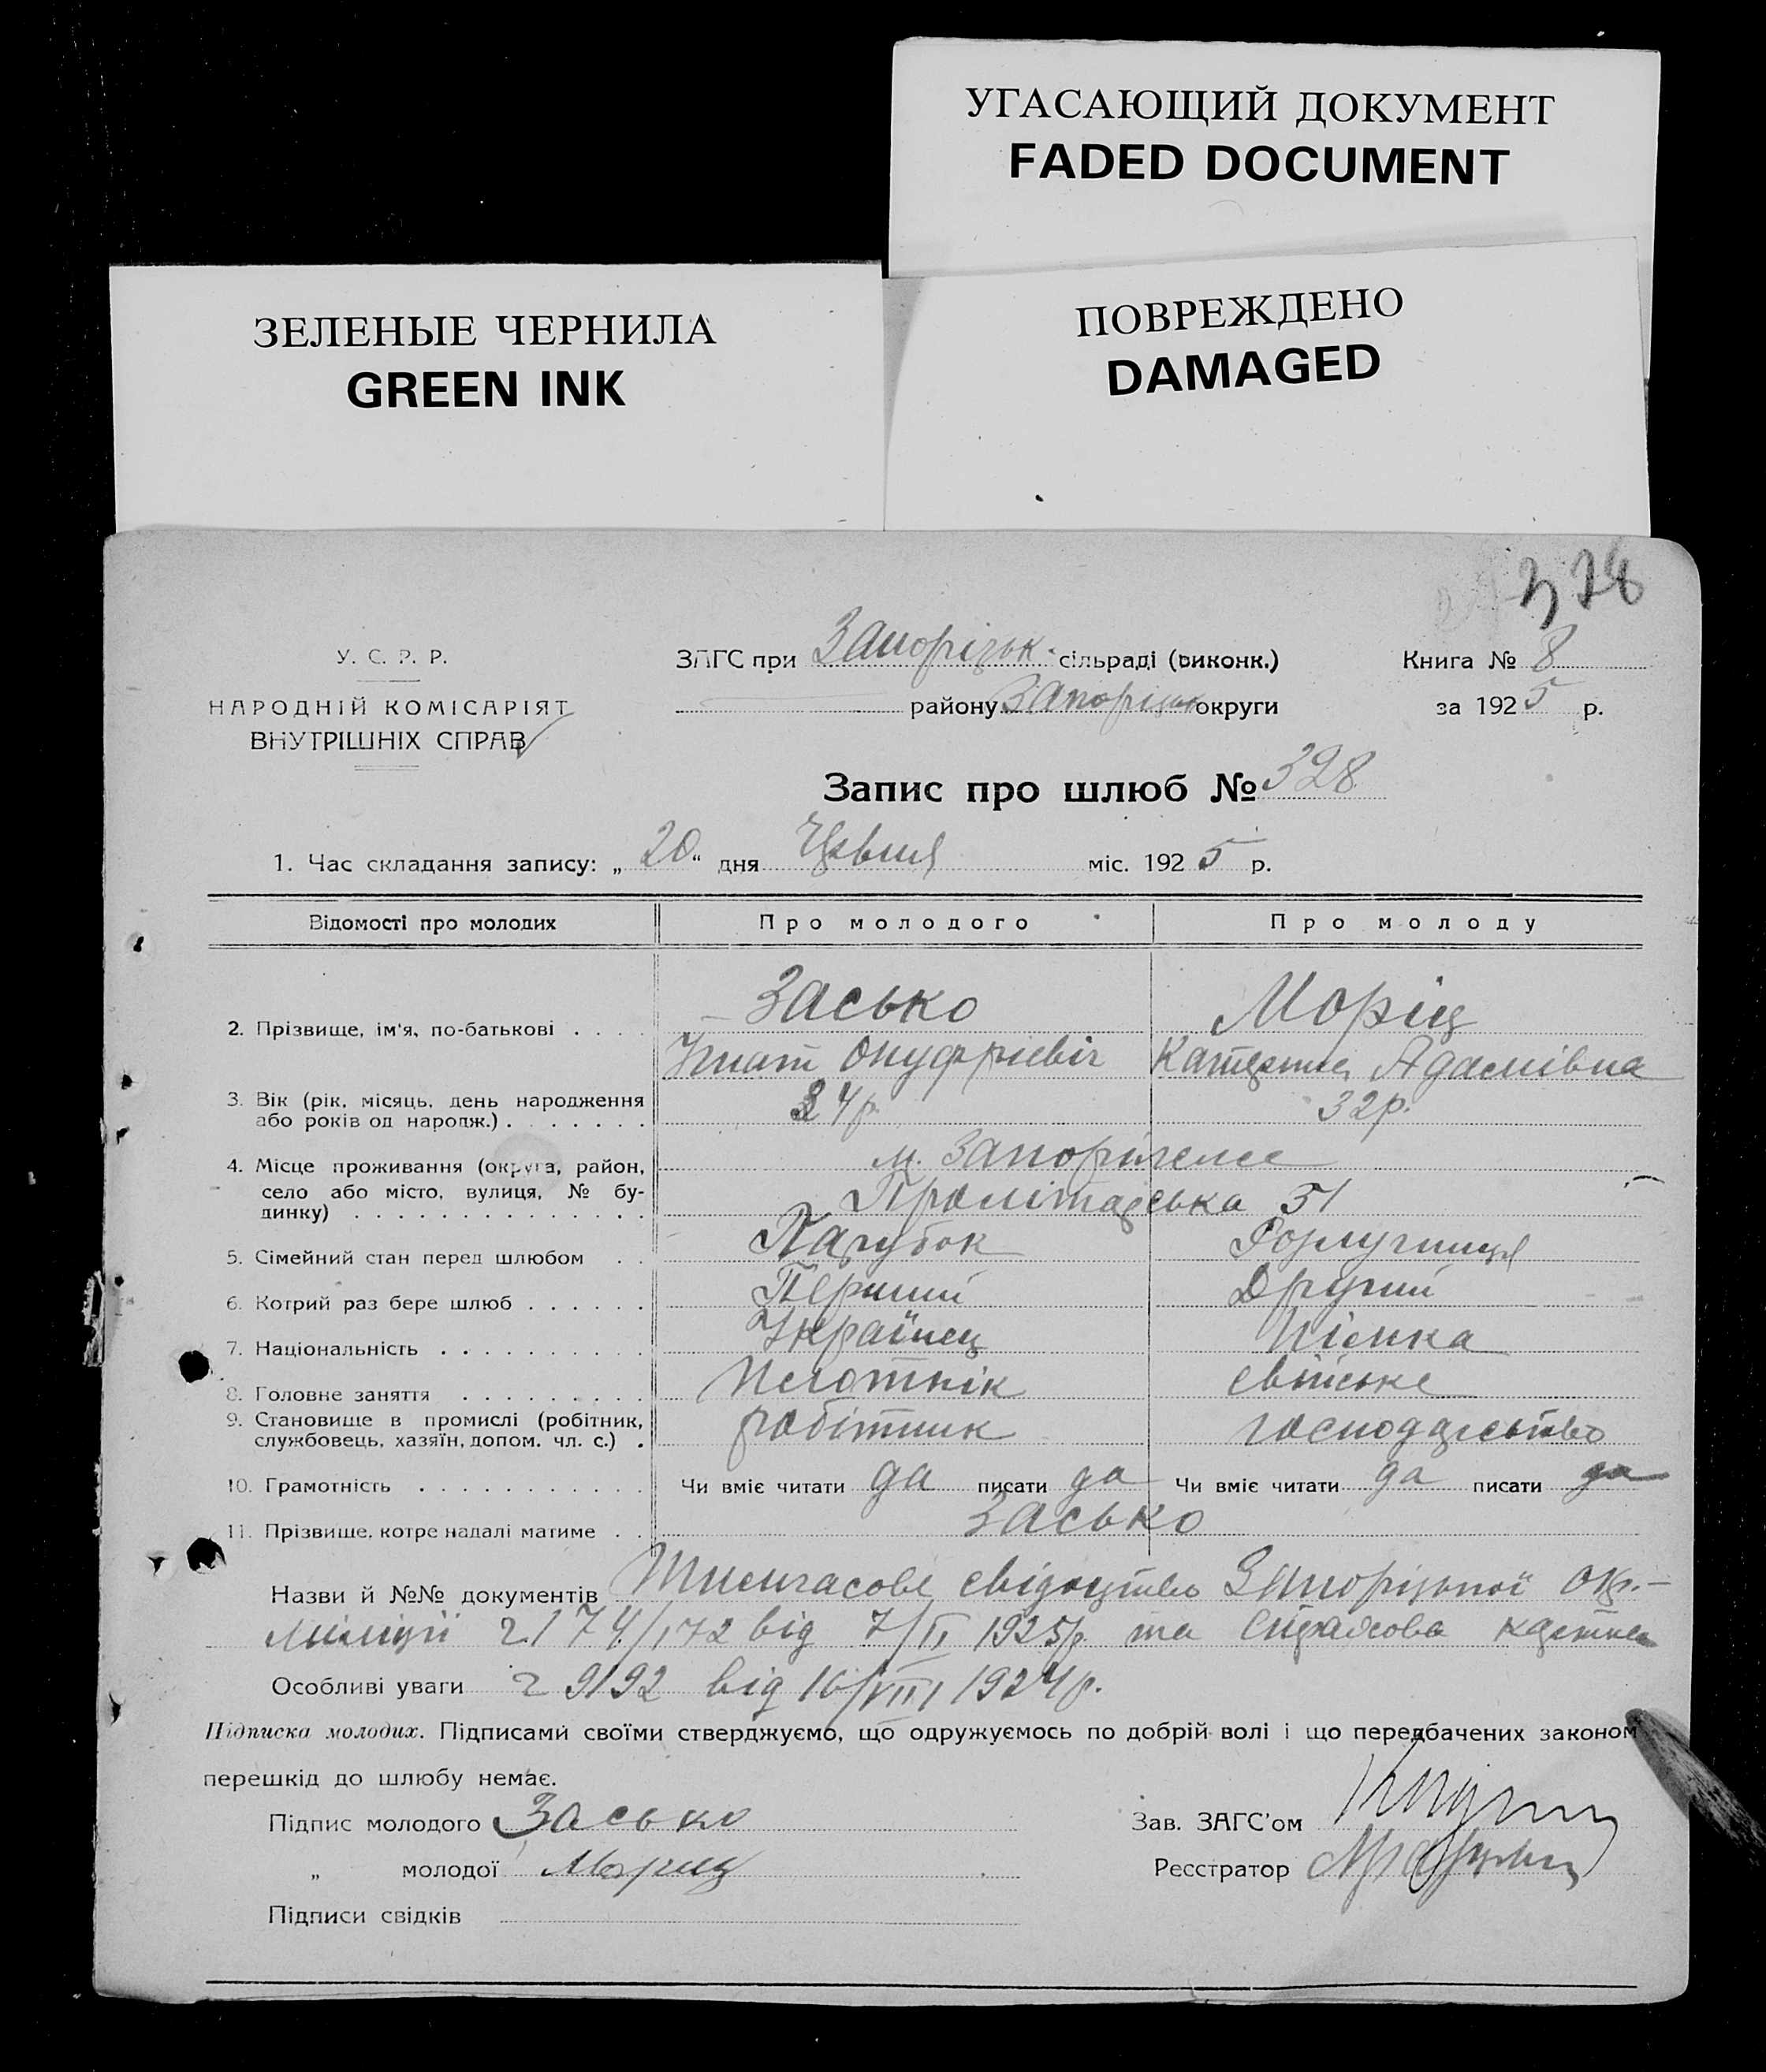 УГАСАЮЩИЙ ДОКУМЕНТ
FADED DOCUMENT
ЗЕЛЕНЫЕ ЧЕРНИЛА
GREEN INK
ПОВРЕЖДЕНО
DAMAGED
328
У. С. Р. Р.
НАРОДНІЙ КОМІСАРІЯТ
ВНУТРІШНІХ СПРАВ
ЗАГС при Запорізьк. сільраді (виконк.)
району Запорізьк округи
Книга № 8
за 1925 р.
Запис про шлюб № 328
1. Час складання запису: „ 20 “ дня Червня міс. 1925 р.
Відомості про молодих Про молодого Про молоду
2. Прізвище, ім'я, по-батькові . . . . Засько Моріц
Гнат Онуфрієвіч Катерина Адамівна
3. Вік (рік, місяць, день народження
або років од народж.) . . . . . . . 24 р. 32 р.
4. Місце проживання (округа, район, м. Запоріжже
село або місто, вулиця, № бу-
динку) . . . . . . . . . . . . . . Пролітарська 51
5. Сімейний стан перед шлюбом . . Парубок Розлучниця
6. Котрий раз бере шлюб . . . . . . Перший Другий
7. Національність . . . . . . . . . . Українец Німка
8. Головне заняття . . . . . . . . . свійське
9. Становище в промислі (робітник,
службовець, хазяїн, допом. чл. с.) . робітник господарство
10. Грамотність . . . . . . . . . . . Чи вміє читати да писати да Чи вміє читати да писати да
11. Прізвище, котре надалі матиме . . Засько
Назви й №№ документів Тимчасове свідоцтво Запорізької окр.-
міліції ч. 174/172 від 7/II 1925 р. та страхова картка
Особливі уваги ч 9192 від 16/VIII 1924 р.
Підписка молодих. Підписами своїми стверджуємо, що одружуємось по добрій волі і що передбачених законом
перешкід до шлюбу немає.
Підпис молодого Засько
Зав. ЗАГС'ом
„ молодої Мориц
Реєстратор
Підписи свідків